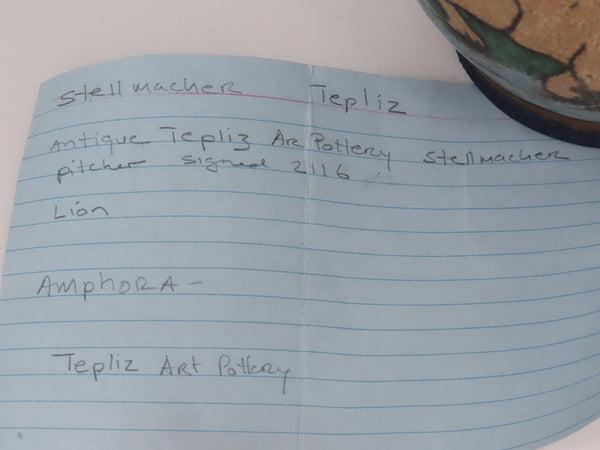 Stellmacher Tepliz
Antique Tepliz Art Pottery Stellmacher
pitcher signed 2116
Lion
AMPHORA -
Tepliz Art Pottery